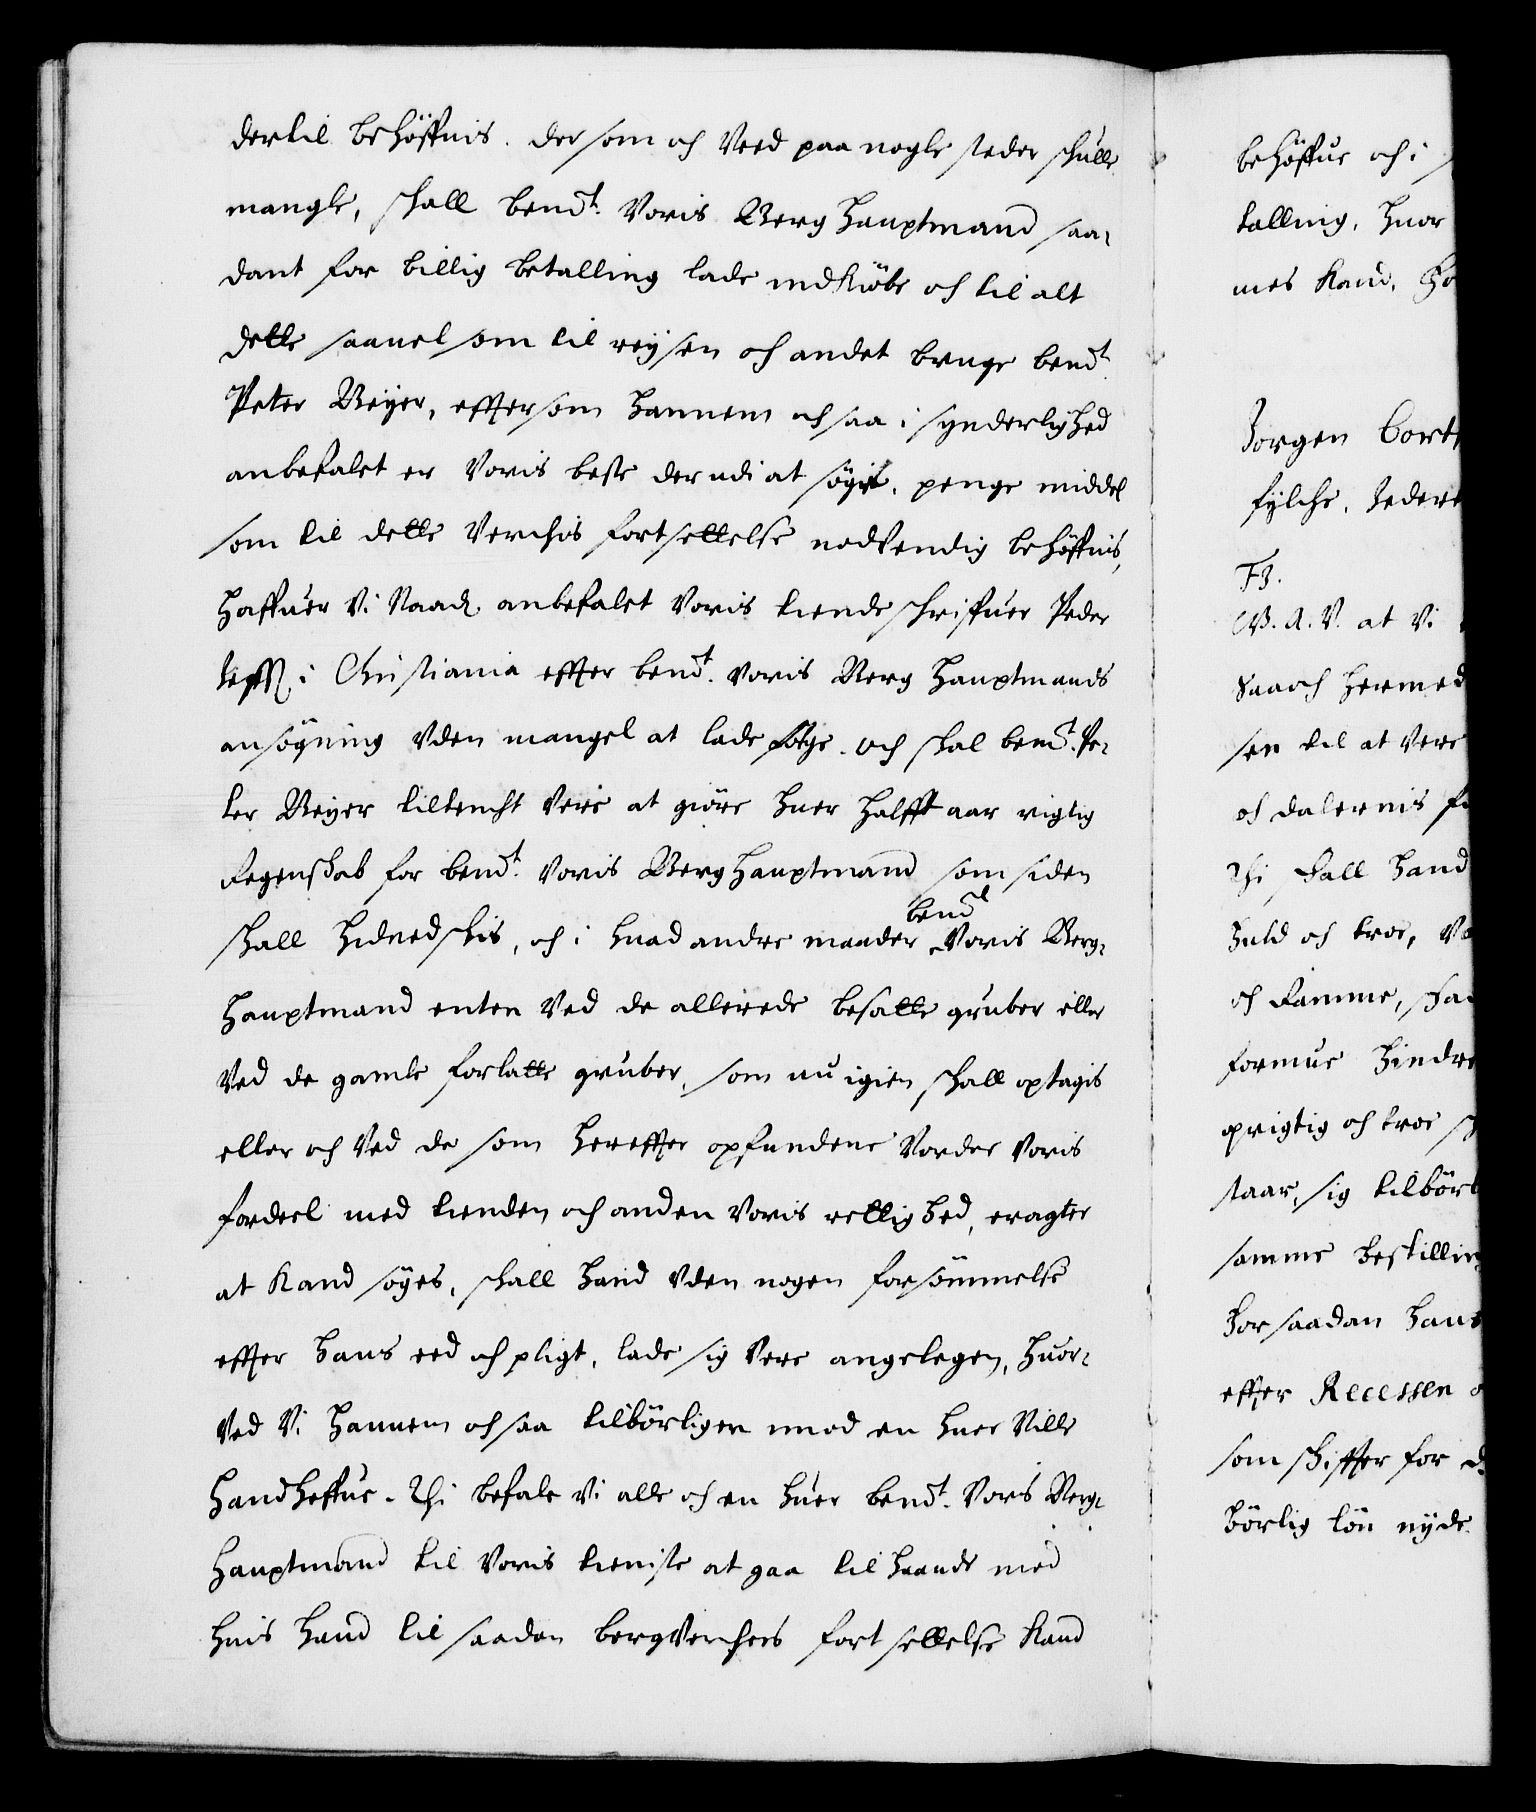 dertil behöffuis. dersom och Veed paa nogle steder schulle
mangle, schall bemt. Voris Berg Hauptmand saa-
dant for billig betalling lade indkiöbe och til alt
dette saauel som til reysen och andet bruge bemt.
Peter Meyer, effter som hannem och saa i synderlighed
anbefalet er Voris beste der udi at söge, penge middel
som til dette Verchis fortsettelse nodvendig behöffuis,
haffuer Vi Naad. anbefalet Voris tiende schriffuer Peder
i Christiania effter bemt. Voris Berg Hauptmands
ansögning Vden mangel at lade fölge. och skal bemt. Pe-
ter Meyer tiltencht Vere at giöre huer halfft aar rigtig
Regenskab for bemt. Voris Berghauptmand som siden
bemt
schall hidnedschis, och i huad andre maader Voris Berg-
hauptmand enten Ved de allerede besatte gruber eller
Ved de gamle forlatte gruber, som nu igien schall optagis
eller och Ved de som hereffter opfundene Vorder Voris
fordeel med tienden och anden Voris rettighed, eragter
at kand söges, schall hand Vden nogen forsömmelse
effter hans eed och pligt, lade sig Vere angelegen, huor-
Ved Vi hannem och saa tilbörligen imod en huer Ville
handheffue. Thi befale Vi alle och en huer bemt. Voris Berg-
hauptmand til Voris tieniste at gaa til haande med
huis hand til saadan bergverchers fortsettelse kand
behöffue och i
talling, huor
mes kand.
Jorgen
fylche,
F3.
G. A. V. at Vi
Saasch hermed
sen til at Vere
och dalernis
Thi schall hand
huld och troe,
och Ramme,
formue hindre
oprigtig och troe
staar, sig
samme bestilling
For saadan hans
effter Recessen
som schiffter for
börlig lön nyde.